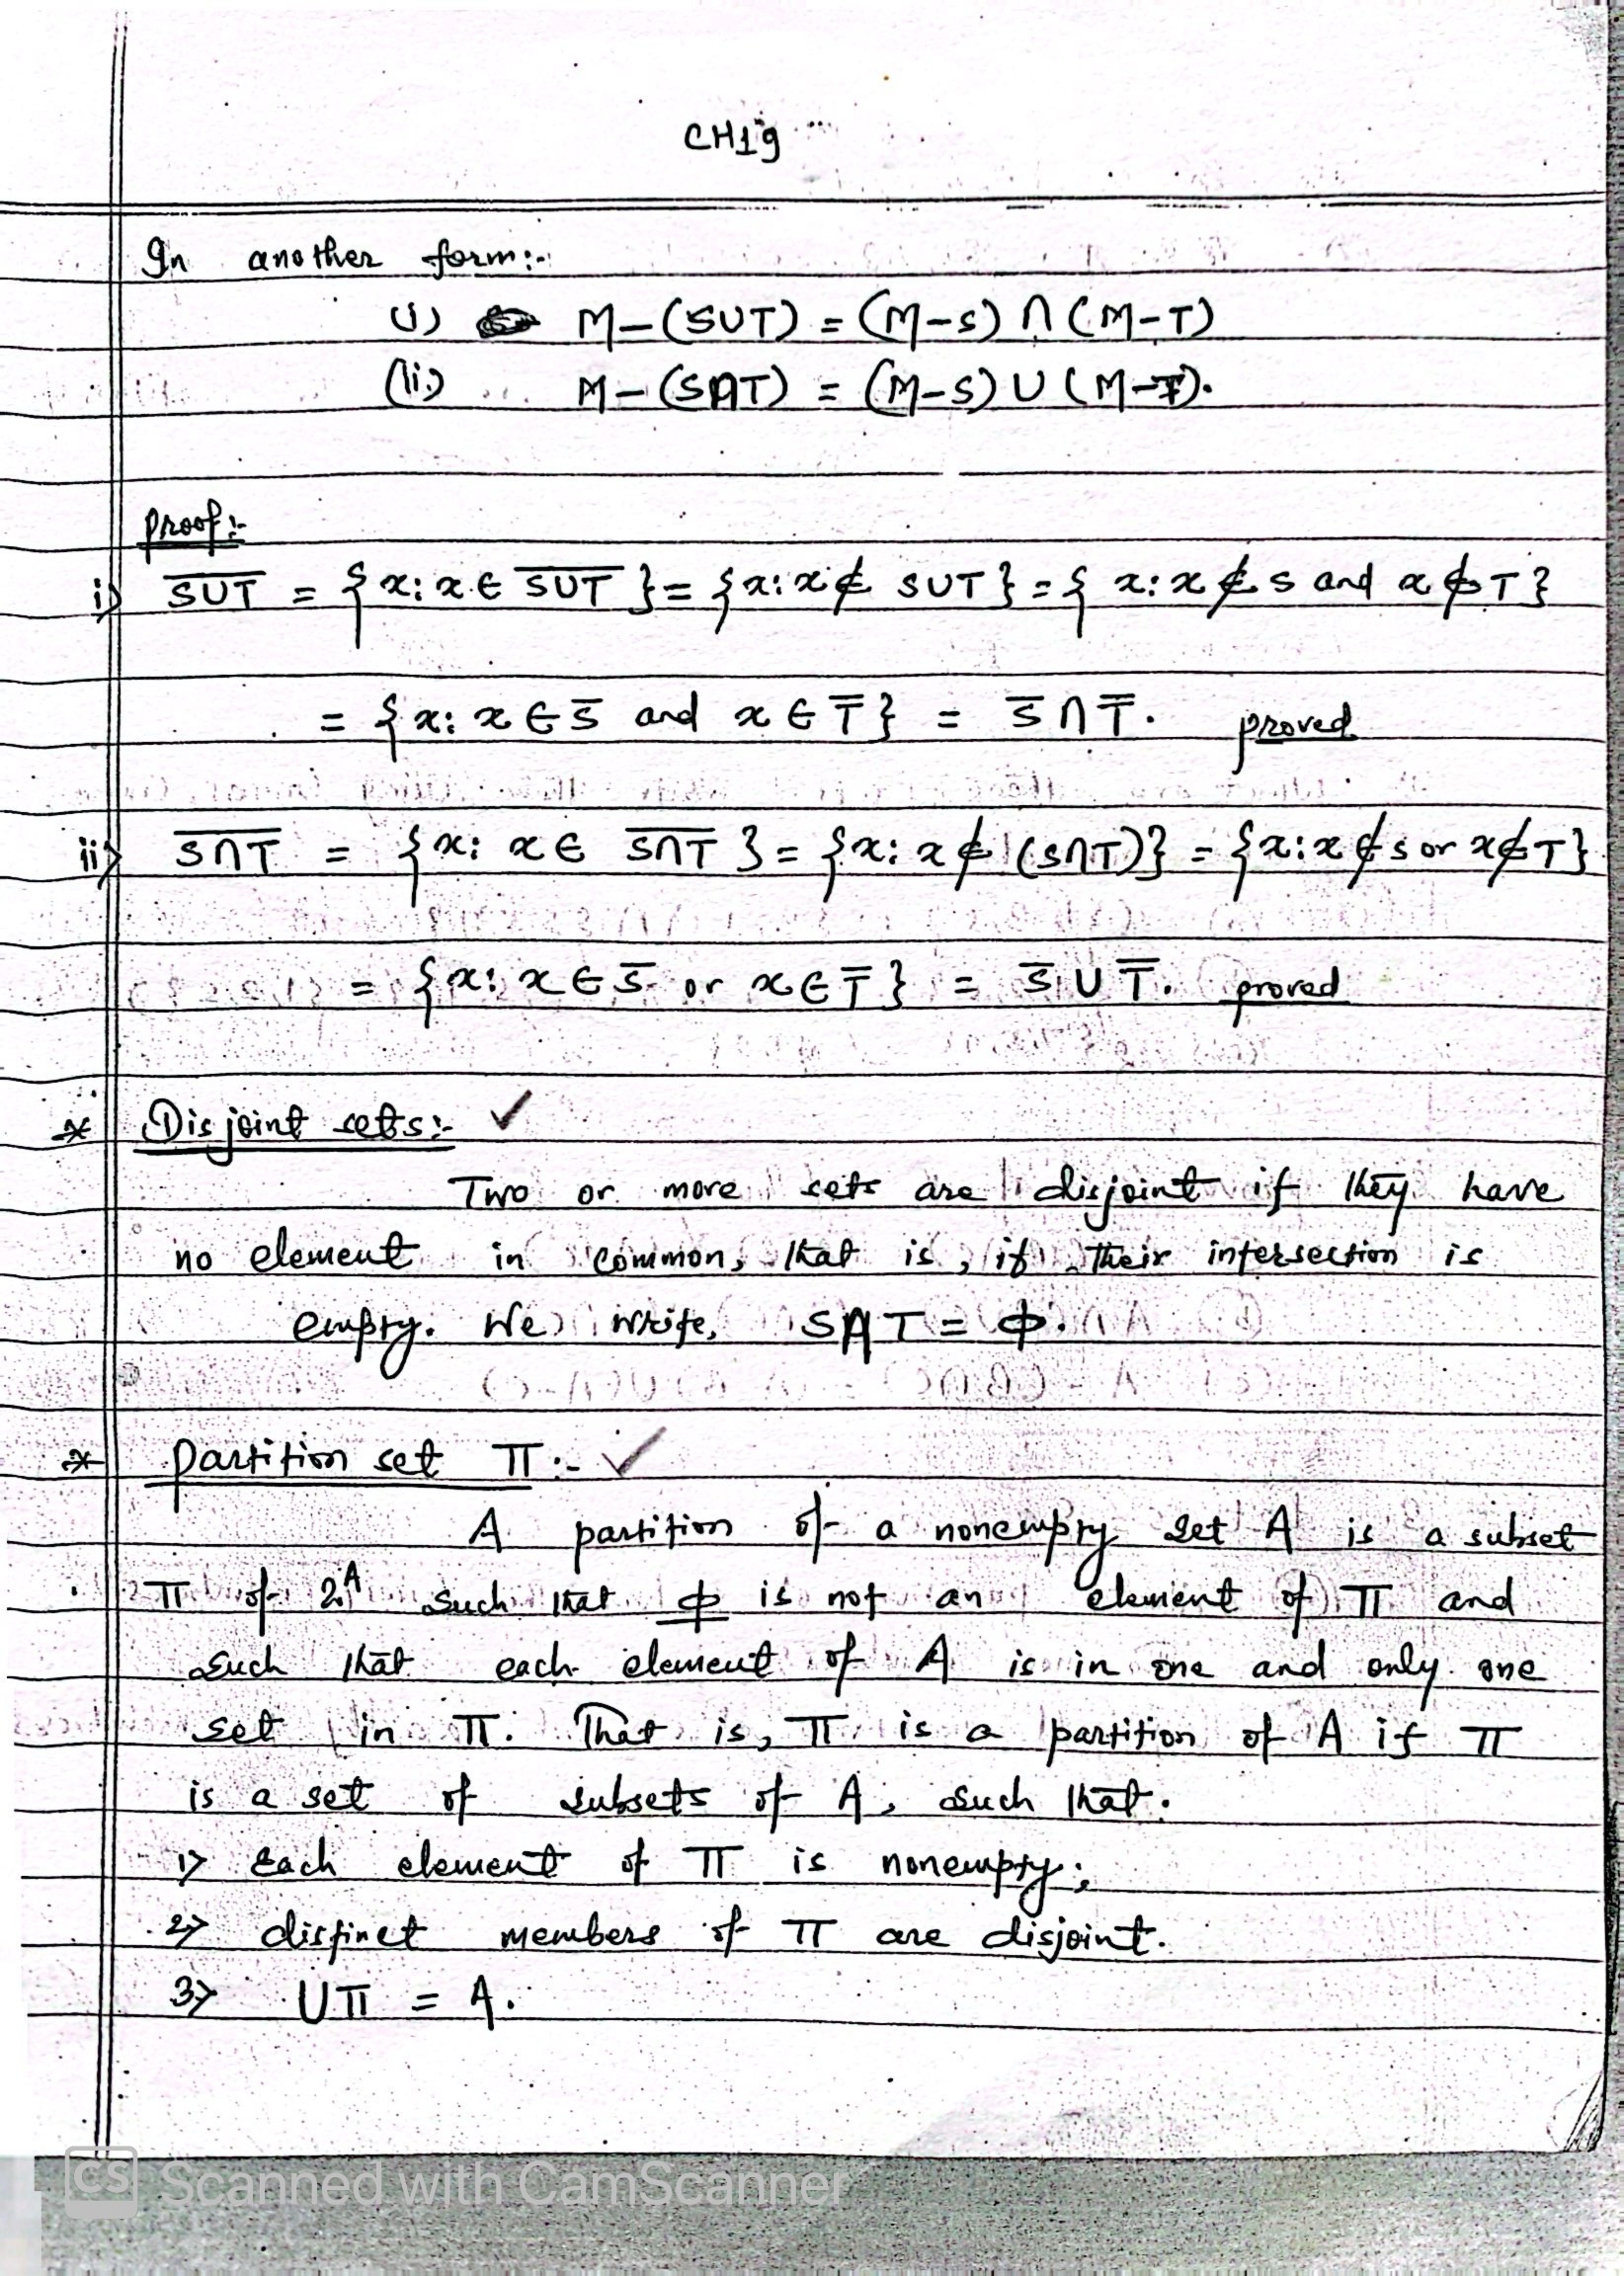 CH1g
In another form:-
(i) M-(S∪T) = (M-S) ∩ (M-T)
(ii) M-(S∩T) = (M-S) ∪ (M-T).
Proof:-
i) S̅∪̅T̅ = {x: x ∈ S̅∪̅T̅} = {x: x ∉ S∪T} = {x: x ∉ S and x ∉ T}
= {x: x ∈ S̅ and x ∈ T̅} = S̅ ∩ T̅. proved
ii) S̅∩̅T̅ = {x: x ∈ S̅∩̅T̅} = {x: x ∉ (S∩T)} = {x: x ∉ S or x ∉ T}
= {x: x ∈ S̅ or x ∈ T̅} = S̅ ∪ T̅. proved
* Disjoint sets:- ✓
Two or more sets are disjoint if they have
no element in common, that is, if their intersection is
empty. We write, S∩T = ϕ.
* Partition set π :- ✓
A partition of a nonempty set A is a subset
π of 2ᴬ such that ϕ is not an element of π and
such that each element of A is in one and only one
set in π. That is, π is a partition of A if π
is a set of subsets of A, such that.
1> Each element of π is nonempty;
2> distinct members of π are disjoint.
3> ∪π = A.
CS Scanned with CamScanner